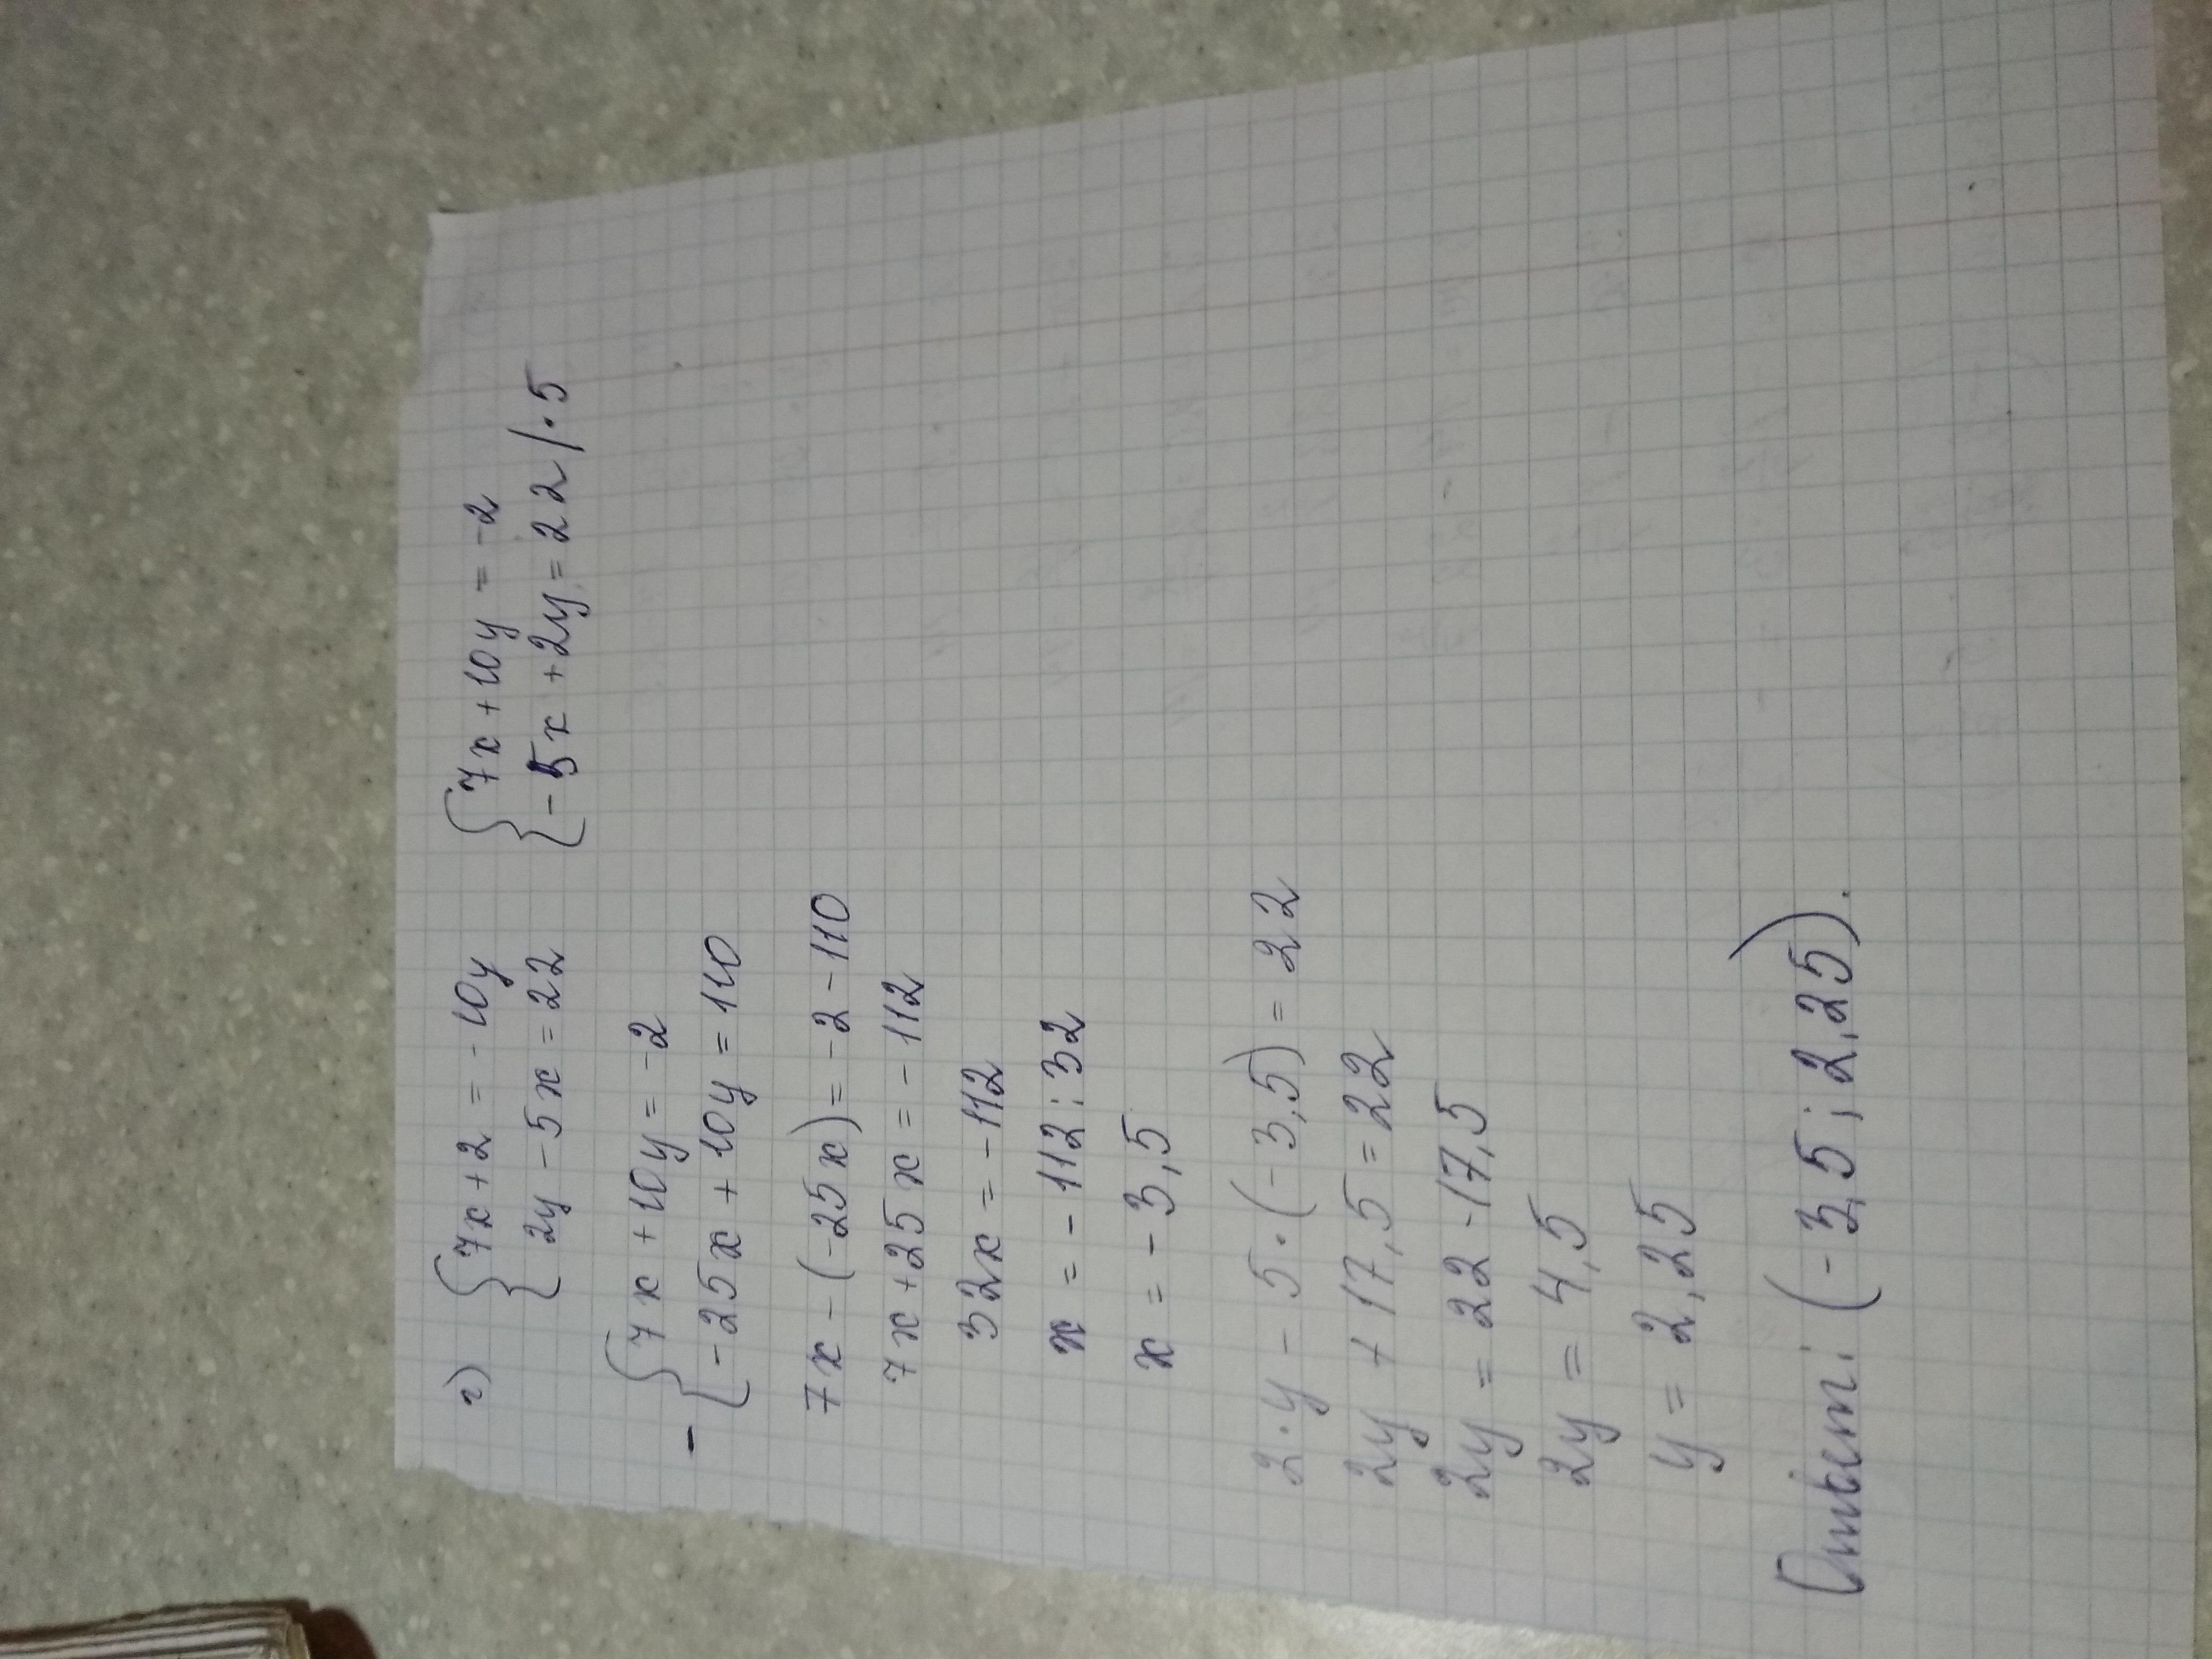 г) {7x+2=-10y {7x+10y=-2
{2y-5x=22 {-5x+2y=22 |·5
- {7x+10y=-2
{-25x+10y=110
7x-(-25x)=-2-110
7x+25x=-112
32x=-112
x=-112:32
x=-3,5
2·y-5·(-3,5)=22
2y+17,5=22
2y=22-17,5
2y=4,5
y=2,25
Ответ: (-3,5; 2,25).